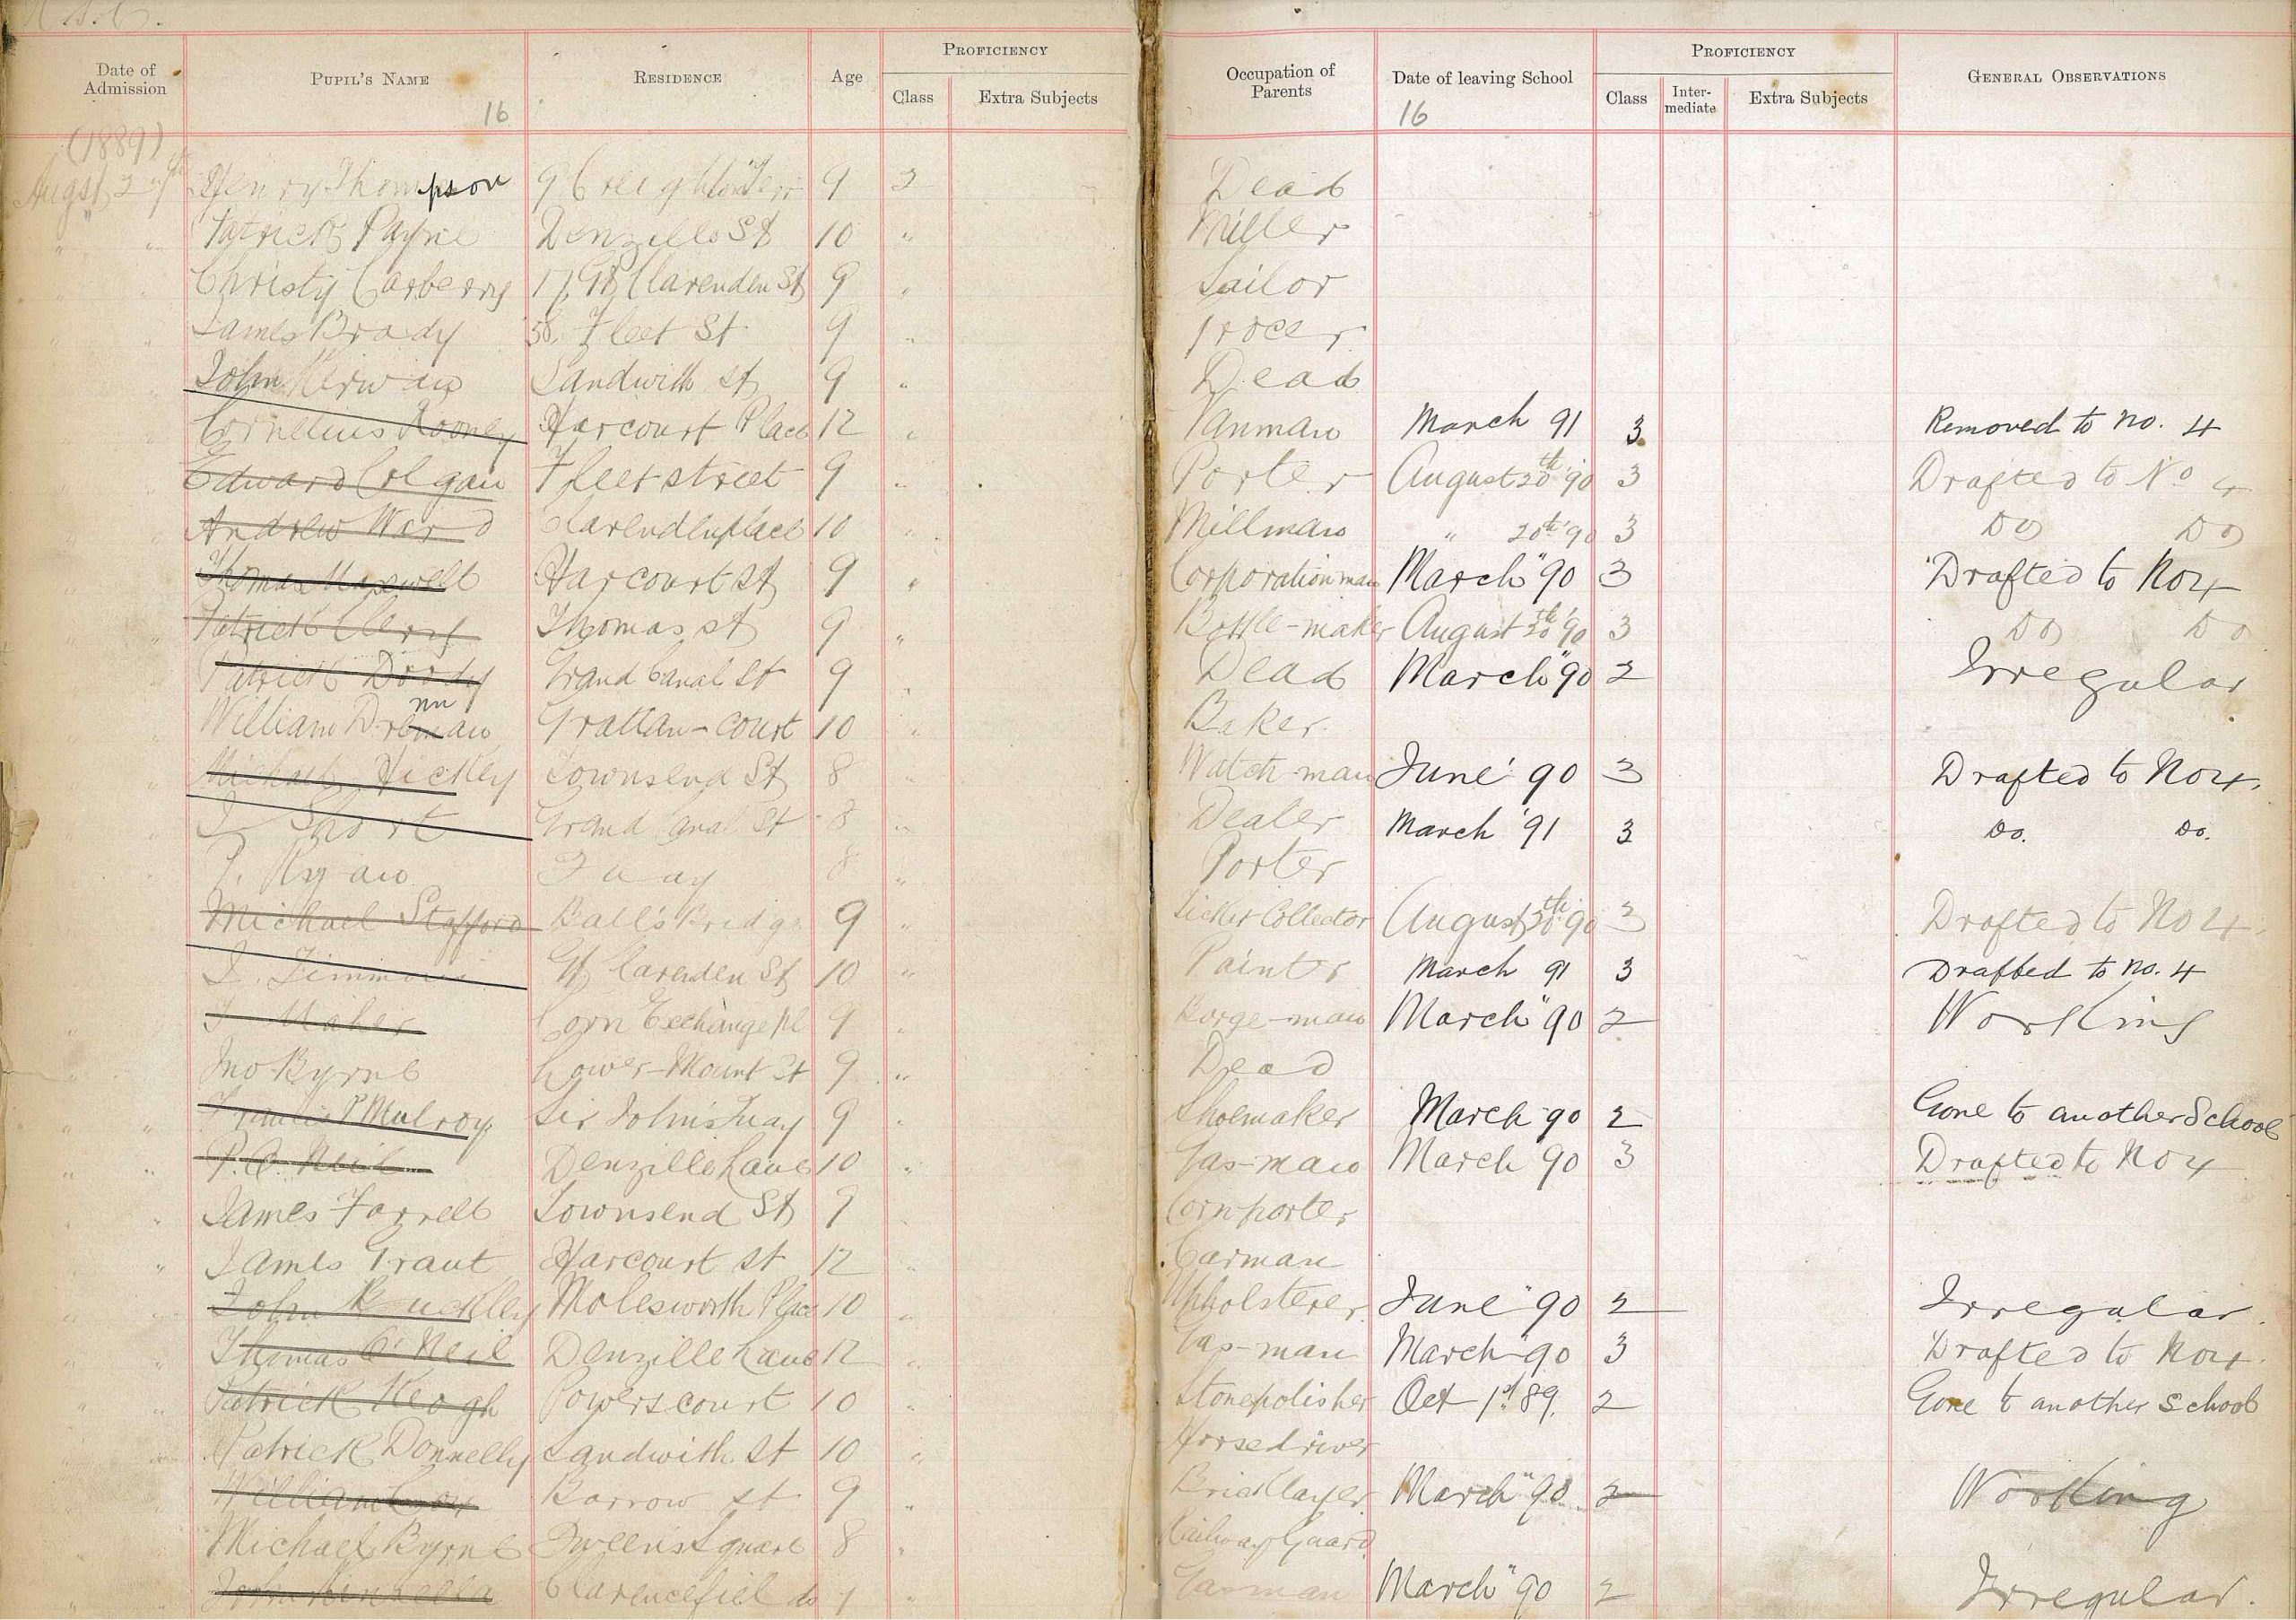 Date of Admission PUPIL'S NAME RESIDENCE Age PROFICIENCY Class Extra Subjects Occupation of Parents Date of leaving School PROFICIENCY Class Inter-mediate Extra Subjects GENERAL OBSERVATIONS
16 16
(1889)
Augst 27th Henry Thompson 9 Creighton Terr 9 3 Dead
" " Patrick Payne Denzille St 10 " Miller
Christy Carberry 17 Gt Clarenden St 9 " Sailor
James Brady 58 Fleet St 9 " Grocer
John Kirwan Sandwith st 9 " Dead
Cornelius Rooney Harcourt Place 12 " Vanman March 91 3 Removed to no. 4
Edward Colgan Fleet street 9 " Porter August 20th '90 3 Drafted to No 4
Andrew Ward Clarenden place 10 " Millman " 20th '90 3 Do Do
Thomas Maxwell Harcourt st 9 " Corporation man March "90 3 Drafted to No 4
Patrick Clery Thomas st 9 " Bottle-maker August 20th '90 3 Do Do
Patrick Doody Grand Canal St 9 " Dead March "90 2 Irregular
nn
William Dreman Grattan-court 10 " Baker
Michael Hickey Townsend St 8 " Watch-man June '90 3 Drafted to No 4.
Short Grand Canal St 8 " Dealer March '91 3 Do. Do.
Ryan 8 " Porter
Michael Stafford Ball's Bridge 9 " Ticket Collector August 20th '90 3 Drafted to No 4.
Gt Clarenden St 10 " Painter March 91 3 Drafted to no. 4
Maher Corn Exchange pl 9 " Barge-man March "90 2 Working
Jno Byrne Lower-Mount St 9 " Dead
Francis P Mulroy Sir John's Quay 9 " Shoemaker March 90 2 Gone to another School
P. O'Neil Denzille Lane 10 " Gas-man March 90 3 Drafted to No 4
James Farrell Townsend St 9 " Corn porter
James Grant Harcourt st 12 " Carman
John Buckley Molesworth Place 10 " Upholsterer June "90 2 Irregular.
Thomas O'Neil Denzille Lane 12 " Gas-man March 90 3 Drafted to No 4.
Patrick Keogh Powerscourt 10 " Stonepolisher Oct 1st 89. 2 Gone to another School
Patrick Donnelly Sandwith St 10 " Horsedriver
William Barrow st 9 " Bricklayer March "90 2 Working
Michael Byrne Queen's Square 8 " Railway Guard
John Kinsella 9 " Gasman March "90 2 Irregular.